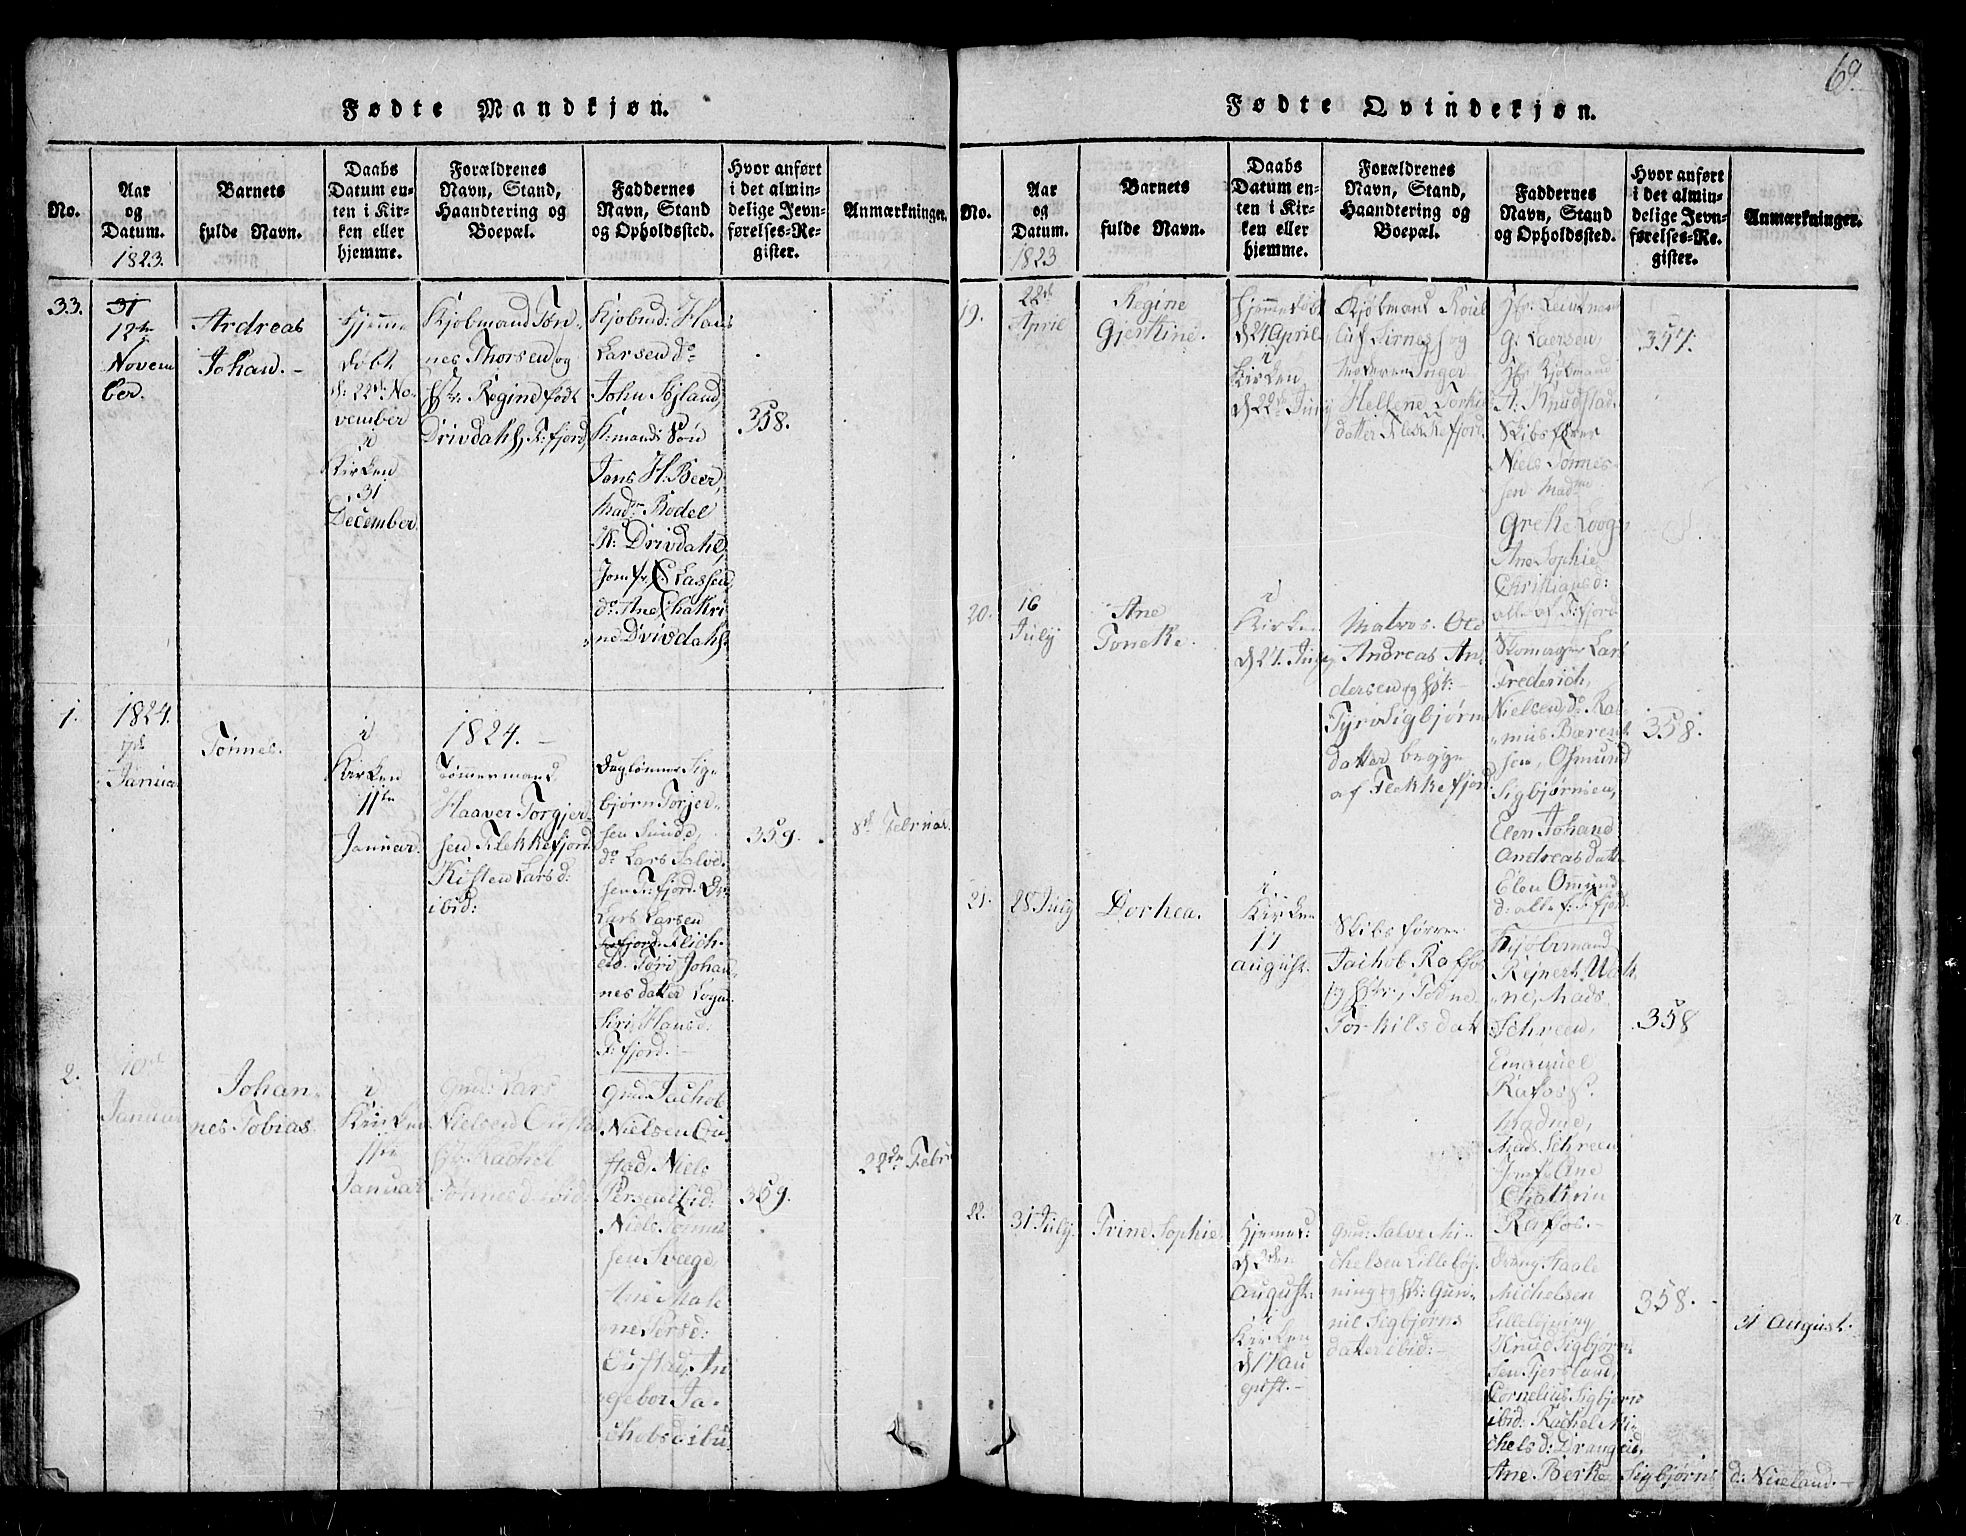 69.
Fødte Mandkjøn.
No.
Aar
og
Datum.
1823.
Barnets
fulde Navn.
Daabs
Datum en-
ten i Kir-
ken eller
hjemme.
Forældrenes
Navn, Stand,
Haandtering og
Boepæl.
Faddernes
Navn, Stand
og Opholdssted.
Hvor anført
i det almin-
delige Jevn-
førelses-Re-
gister.
Anmærkninger.
33.
31
12te
Novem
ber.
Andreas
Johan. -
Hjemme
døbt
d: 22de No-
vember
i
Kirken
31
December.
Kjøbmand Tøn-
nes Thorsen og
Hstr. Regine født
Drivdahl, F:fjord,
Kjøbmd: Hans
Larsen do
John Søjland,
K:mands Søn
Jans H. Beer,
Mad: Bodel
K: Drivdahl,
Jomfr. C Lassen
do Ane Chatri
ne Drivdahl.
358.
1.
1824.
7de
Januar
Tønnes.
i
Kirken
11te
Januar.
1824. -
Tømmermand
Haaver Torgjer-
sen Flekkefjord.
Kisten Larsd:
ibid:
Daglønner Sig-
bjørn Torjer-
sen Sunde,
do Lars Salve-
sen F:fjord.
Lars Larsen
Johan-
nesdatter
Siri Hansd:
F:fjord. -
359.
8de Februar.
2.
10de
Januar
Johan-
nes Tobias.
i
Kirken
11te
Januar
Gmd: Lars
Nielsen Oustad
Hstr. Rachel
Tønnesd: ibid.
Gmd: Jachob
Nielsen Ou-
stad, Niels
Persen ibid:
Niels Tønne-
sen Sveege,
Ane Male-
ne Persd:
Oustad, In-
gebor Ja-
chobsd: ibid.
359.
22de Febr
Fødte Qvindekjøn.
No.
Aar
og
Datum.
1823
Barnets
fulde Navn.
Daabs
Datum en-
ten i Kir-
ken eller
hjemme.
Forældrenes
Navn, Stand,
Haandtering og
Boepæl.
Faddernes
Navn, Stand
og Opholdssted.
Hvor anført
i det almin-
delige Jevn-
førelses-Re-
gister.
Anmærkninger.
19.
22de
April
Regine
Gjertine.
Hjemmedøbt
d 24 April
i
Kirken
d 22de Juny
Kjøbmand
og
Moderen Inger
Hellene Torkils
datter Flekkefjord.
G. Laersen,
Kjøbmand
A. Knudstad.
Skibsfører
Niels Tønnes-
sen Madme
Grethe Loog,
Ane Sophie
Christiansd:
alle af F:fjord
357.
20.
16
July
Ane
Tonette.
i
Kirken
d 27. July
Matros. Ole
Andreas An-
dersen og Hst:
Tyro Sigbjørns
datter begge
af Flekkefjord.
Skomager Lars
Frederich,
Nielsen, do Ra-
mus Bærent-
sen, Osmund
Sigbjørnsen,
Elen Johand
Andreasdatt.
Elen Omund
d: alle F:fjord
358.
21.
28 July
Dorthea.
i
Kirken
17
August.
Skibsfører
Jachob Rafos
og Hstr. Todne
Torkilsdatt
Kjøbmand
Rejnert
Mads
Schreen,
Emanuel
Rafos
Madme,
Mads Schreen
Jomf. Ane
Chatrin
Rafos. -
358
22.
31 July.
Trine Sophie
Hjemme
d 3den
August.
Kirken
d 17 Au
gust. -
Gmd: Salve Mi-
chelsen Lilleløj-
ning og Hst: Gun-
nil Sigbjørns
datter ibid: -
Dreng Staale
Michelsen
Lilleløjning,
Knud Sigbjørn-
sen Fjersland,
Cornelius Sigbjørns
ibid: Rachel Mi-
chelsd: Drangeid,
Ane Berte Sigbjørns d: Nueland. -
358.
31 August.